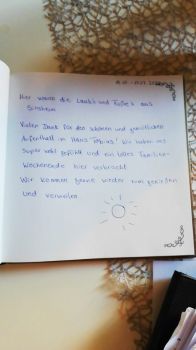 Hier waren die
und
aus
Sinsheim
Vielen Dank für den schönen und gemütlichen
Aufenthalt im Haus Tobias! Wir haben uns
super wohl gefühlt und ein tolles Familien-
Wochenende hier verbracht.
Wir kommen gerne wieder zum
und verweilen